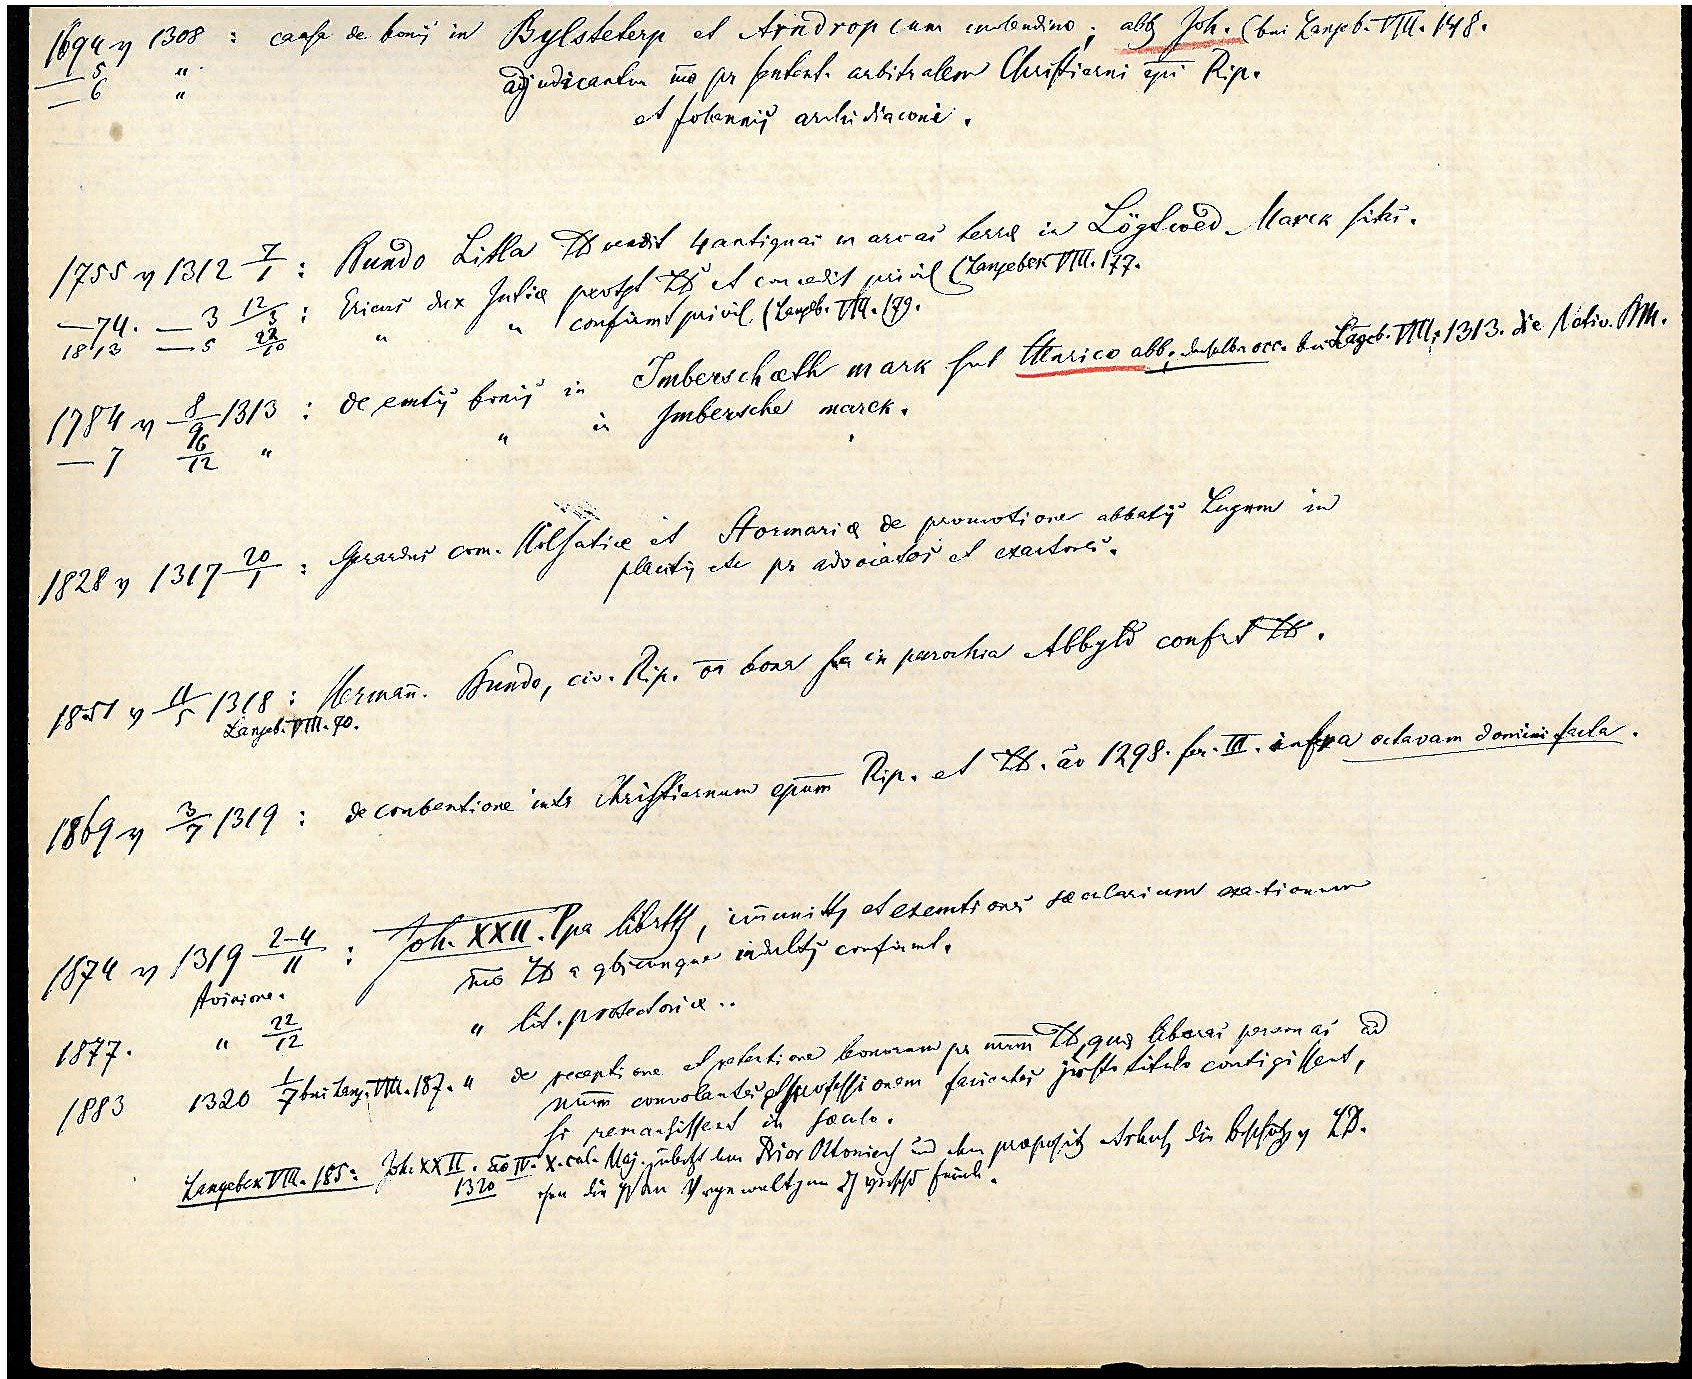 1694 v 1308 : causa de bonis in Bylsteterp et Arndrop cum molendino; abb Joh. (bei Langeb. VIII. 148.
— 5 "
— 6 "
adjudicantur m̄o pr sentent. arbitralem Christierni ep̄i Rip.
et Johannis archidiaconi.
1755 v 1312 7/1 : Bundo Litla LD vendit 4 antiquas marcas terræ in Lögtwed Marck sitas.
— 74. — 3 12/3 : Ericus dux Jutiæ LD et concedit privil (Langebek VIII. 177.
1813 — 5 22/10 " " confirmt privil. (Langeb. VIII. 179.
1784 v 8/9 1313 : de emtis bonis in Imberschæth mark sub Thurico abb. derselbe occ. bei Langeb. VIII. 1313. die Nativ. BM.
— 7 16/12 " " in Imbersche marck.
1828 v 1317 20/1 : Gerardus com. Holsatiæ et Stormariæ de promotione abbatis Lugum in
placitis etc pr advocatos et exactores.
1851 v 11/5 1318 : Hermañ. Bundo, civ. Rip. bona sua in parochia Abbyld confert LD.
Langeb. VIII. 90.
1869 v 3/7 1319 : de conventione inter Christiernum ep̄um Rip. et LD. ao 1298. fer. III. infra octavam domini facta.
1874 v 1319 2-4/11 : Joh. XXII. Ppa libertts, im̄unitts et exemtiones sæcularium exactionum
Avinione. m̄o LD a qbscunque indultis confirmt.
1877. " 22/12 " lit. protectoriæ ..
1883 1320 1/7 bei Lang. VIII. 187. " de receptione et retentione bonorum pr mrm LD, quæ liberas personas ad
mrm convolantes et professionem facientes justo titulo contigissent,
si remansissent in sæculo.
Langebek VIII. 185: Joh. XXII. ao IV. X. cal. Maj. Prior und dem præposits die v LD.
1320 die